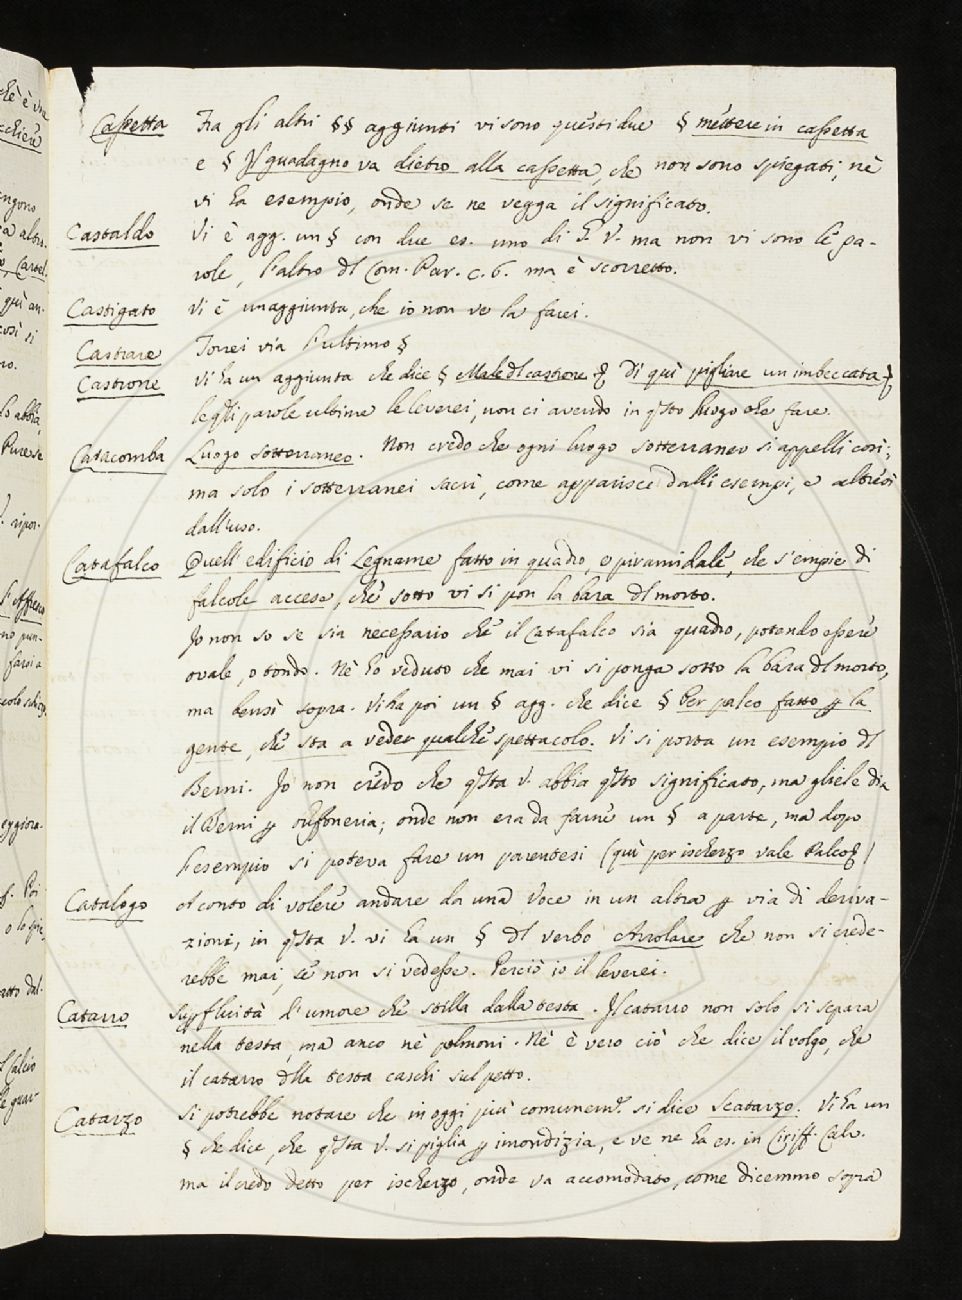 Cassetta Fra gli altri §§ aggiunti vi sono questi due § mettere in cassetta
e § Il guadagno va dietro alla cassetta, che non sono spiegati, nè
vi ha esempio, onde se ne vegga il significato.
Castaldo Vi è agg. un § con due es. uno di F. V. ma non vi sono le pa-
role, l'altro dl Com. Par. c. 6. ma è scorretto.
Castigato Vi è un aggiunta, che io non ve la farei.
Castrare Torrei via l'ultimo §
Castrone Vi ha un aggiunta che dice § Male dl castrone. Di quì pigliare un imbeccata
le qli parole ultime le leverei, non ci avendo in qsto luogo che fare.
Catacomba Luogo sotterraneo. Non credo che ogni luogo sotterraneo si appelli così;
ma solo i sotterranei sacri, come apparisce dalli esempi, e altresì
dall'uso.
Catafalco Quell'edificio di Legname fatto in quadro, o piramidale, che s'empie di
falcole accese, che sotto vi si pon la bara dl morto.
Io non so se sia necessario che il Catafalco sia quadro, potendo essere
ovale, o tondo. Nè ho veduto che mai vi si ponga sotto la bara dl morto,
ma bensì sopra. Vi ha poi un § agg. che dice § Per palco fatto p la
gente, che sta a veder qualche spettacolo. Vi si porta un esempio dl
Berni. Io non credo che qsta V. abbia qsto significato, ma gliele dia
il Berni p buffoneria; onde non era da farne un § a parte, ma dopo
l'esempio si poteva fare un parentesi (quì per ischerzo vale Palco)
Catalogo Al conto di volere andare da una Voce in un altra p via di deriva-
zioni, in qsta V. vi ha un § dl verbo Arrolare che non si crede-
rebbe mai, se non si vedesse. Perciò io il leverei.
Catarro Supfluità d'umore che stilla dalla testa. Il catarro non solo si separa
nella testa, ma anco ne' polmoni. Nè è vero ciò che dice il volgo, che
il catarro dlla testa caschi sul petto.
Catarzo Si potrebbe notare che in oggi più comunemte. si dice Scatarzo. Vi ha un
§ che dice, che qsta V. si piglia p imondizia, e ve ne ha es. in Ciriff. Calv.
ma il credo detto per ischerzo, onde va accomodato, come dicemmo sopra